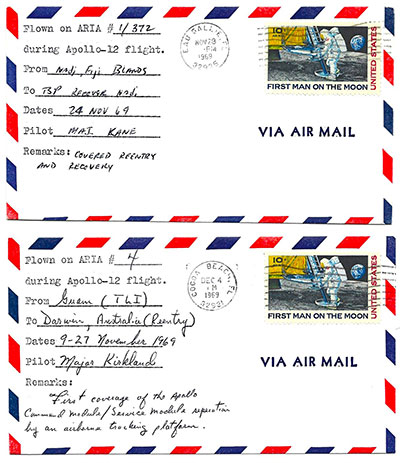 Flown on ARIA # 1/372
during Apollo-12 flight.
From Nadi, Fiji Islands
To TSP RECOVER Nadi
Dates 24 NOV 69
Pilot MAJ. KANE
Remarks: COVERED REENTRY
AND RECOVERY
EAU GALLE, FL
NOV 28
PM
1969
32935
10¢
UNITED STATES
FIRST MAN ON THE MOON
VIA AIR MAIL
Flown on ARIA # 4
during Apollo-12 flight.
From Guam (TLI)
To Darwin, Australia (Reentry)
Dates 9-27 November 1969
Pilot Major Kirkland
Remarks:
"First coverage of the Apollo
Command module/Service module seperation
by an airborne tracking platform.
COCOA BEACH, FL
DEC 4
PM
1969
32931
10¢
UNITED STATES
FIRST MAN ON THE MOON
VIA AIR MAIL